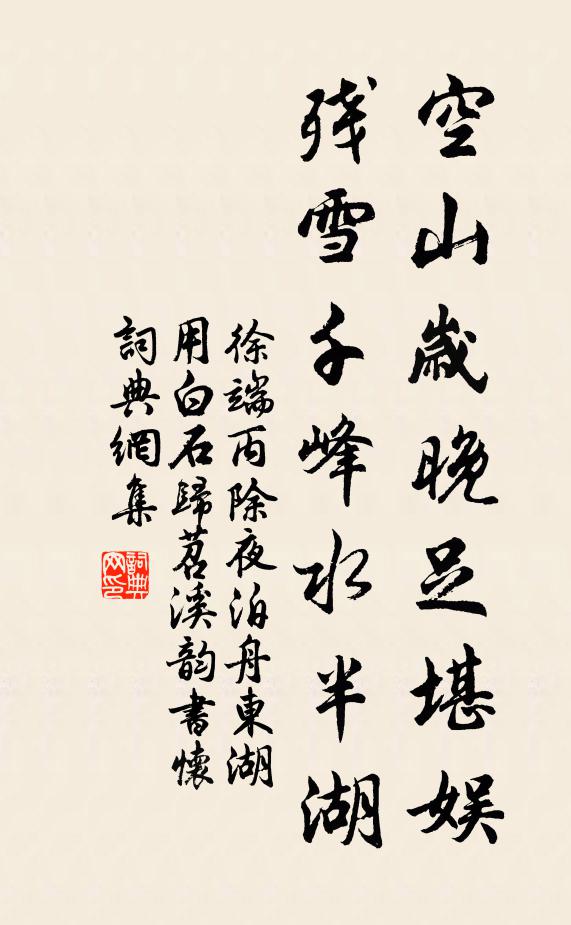 空山歲晚足堪娛
残雪千峰水半湖
徐端丙除夜泊舟東湖
用白石歸苕溪韵書懷
詞典網集
詞典网印